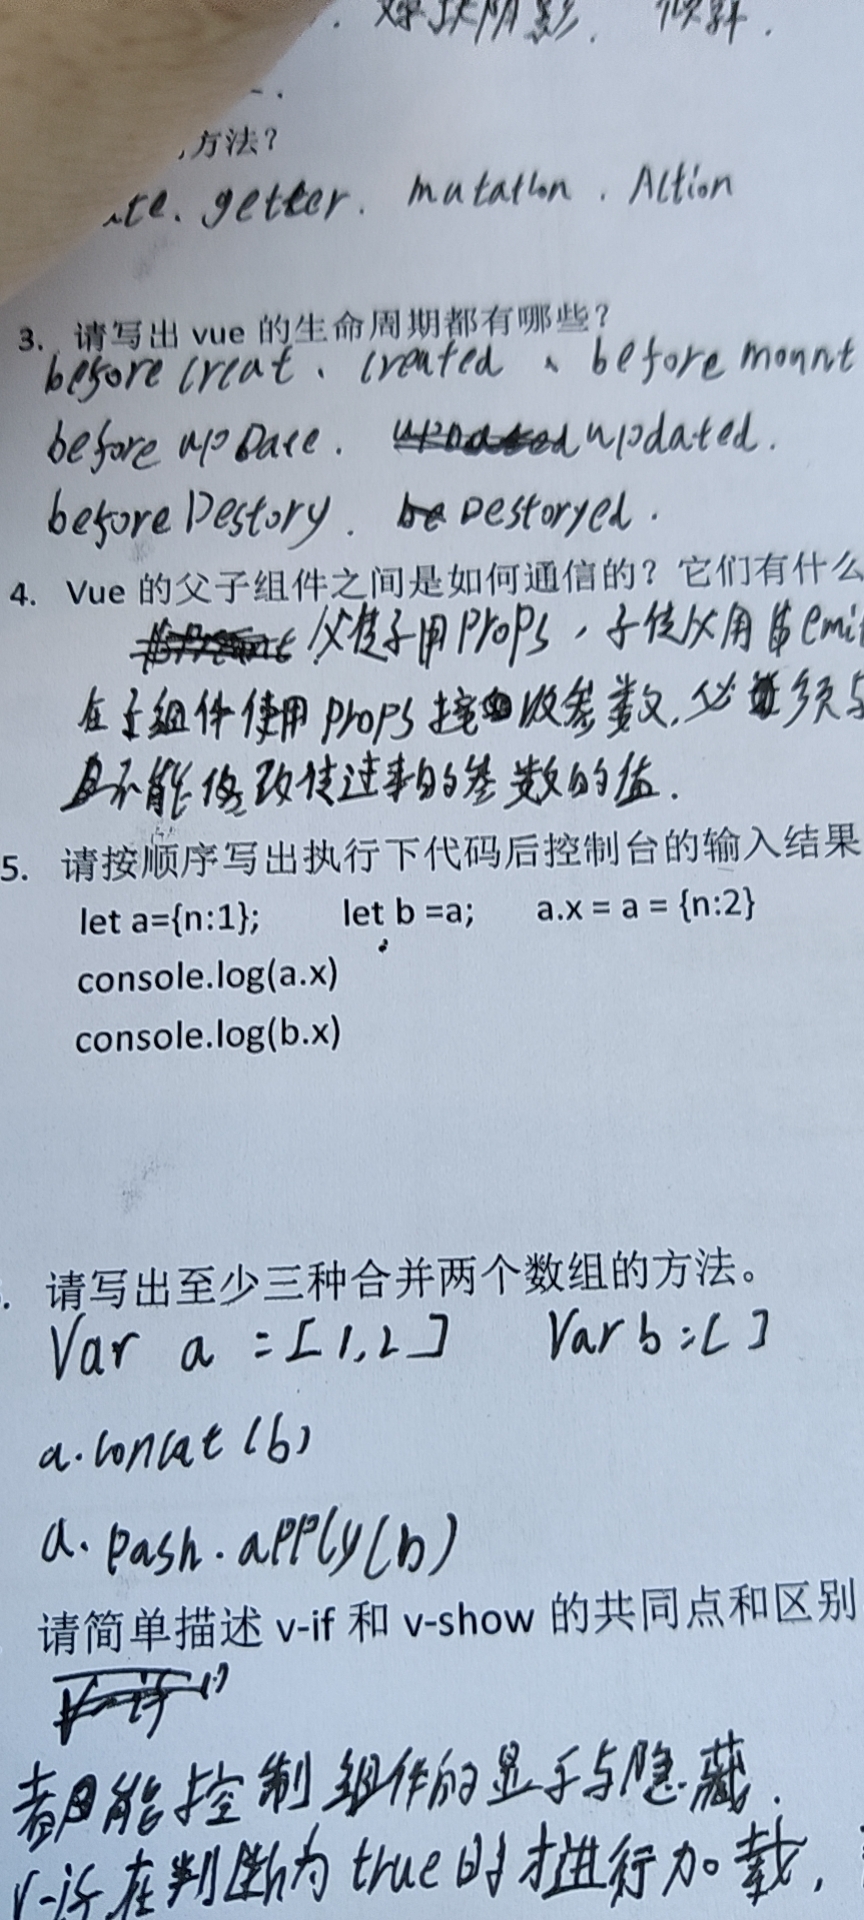 焊接阴影. 倾斜.
方法?
te. getter. mutation. Action
3. 请写出 vue 的生命周期都有哪些?
before creat、created、before mount
before upDate. updated.
before Destory. Destoryed.
4. Vue 的父子组件之间是如何通信的? 它们有什么
父传子用 props, 子传父用 $emit
在子组件使用 props 接收参数, 必须与
且不能修改传过来的参数的值.
5. 请按顺序写出执行下代码后控制台的输入结果
let a={n:1}; let b =a; a.x = a = {n:2}
console.log(a.x)
console.log(b.x)
. 请写出至少三种合并两个数组的方法。
Var a = [1,2] Var b = [ ]
a.concat(b)
a. pash. apply(b)
请简单描述 v-if 和 v-show 的共同点和区别
都能控制组件的显示与隐藏.
v-if 在判断为 true 时才进行加载,